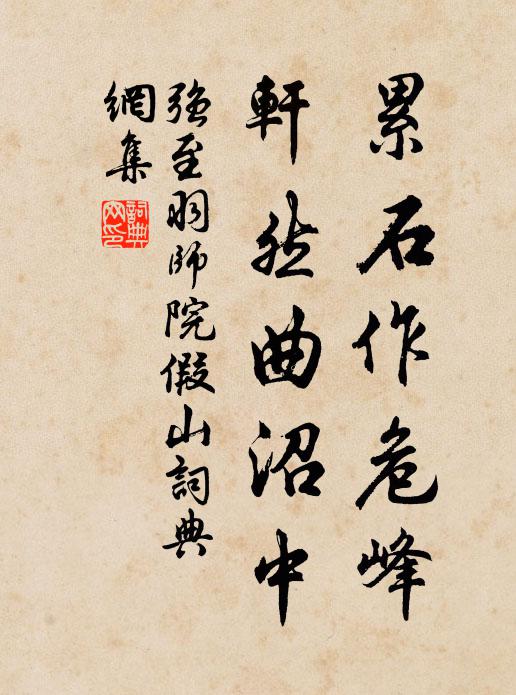 累石作危峰
軒然曲沼中
強至羽師院假山詞典
網集
詞典
網印